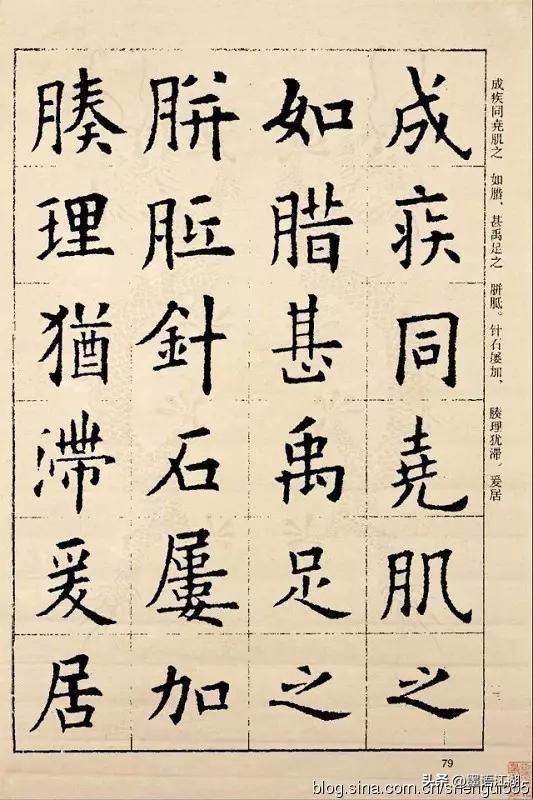 成疾同堯肌之
如腊甚禹足之
胼胝針石屢加
腠理猶滯爰居
成疾同尧肌之 如腊、甚禹足之 胼胝。针石屡加、 腠理犹滞。爰居
79
头条@墨语江湖
blog.sina.com.cn/shengui585